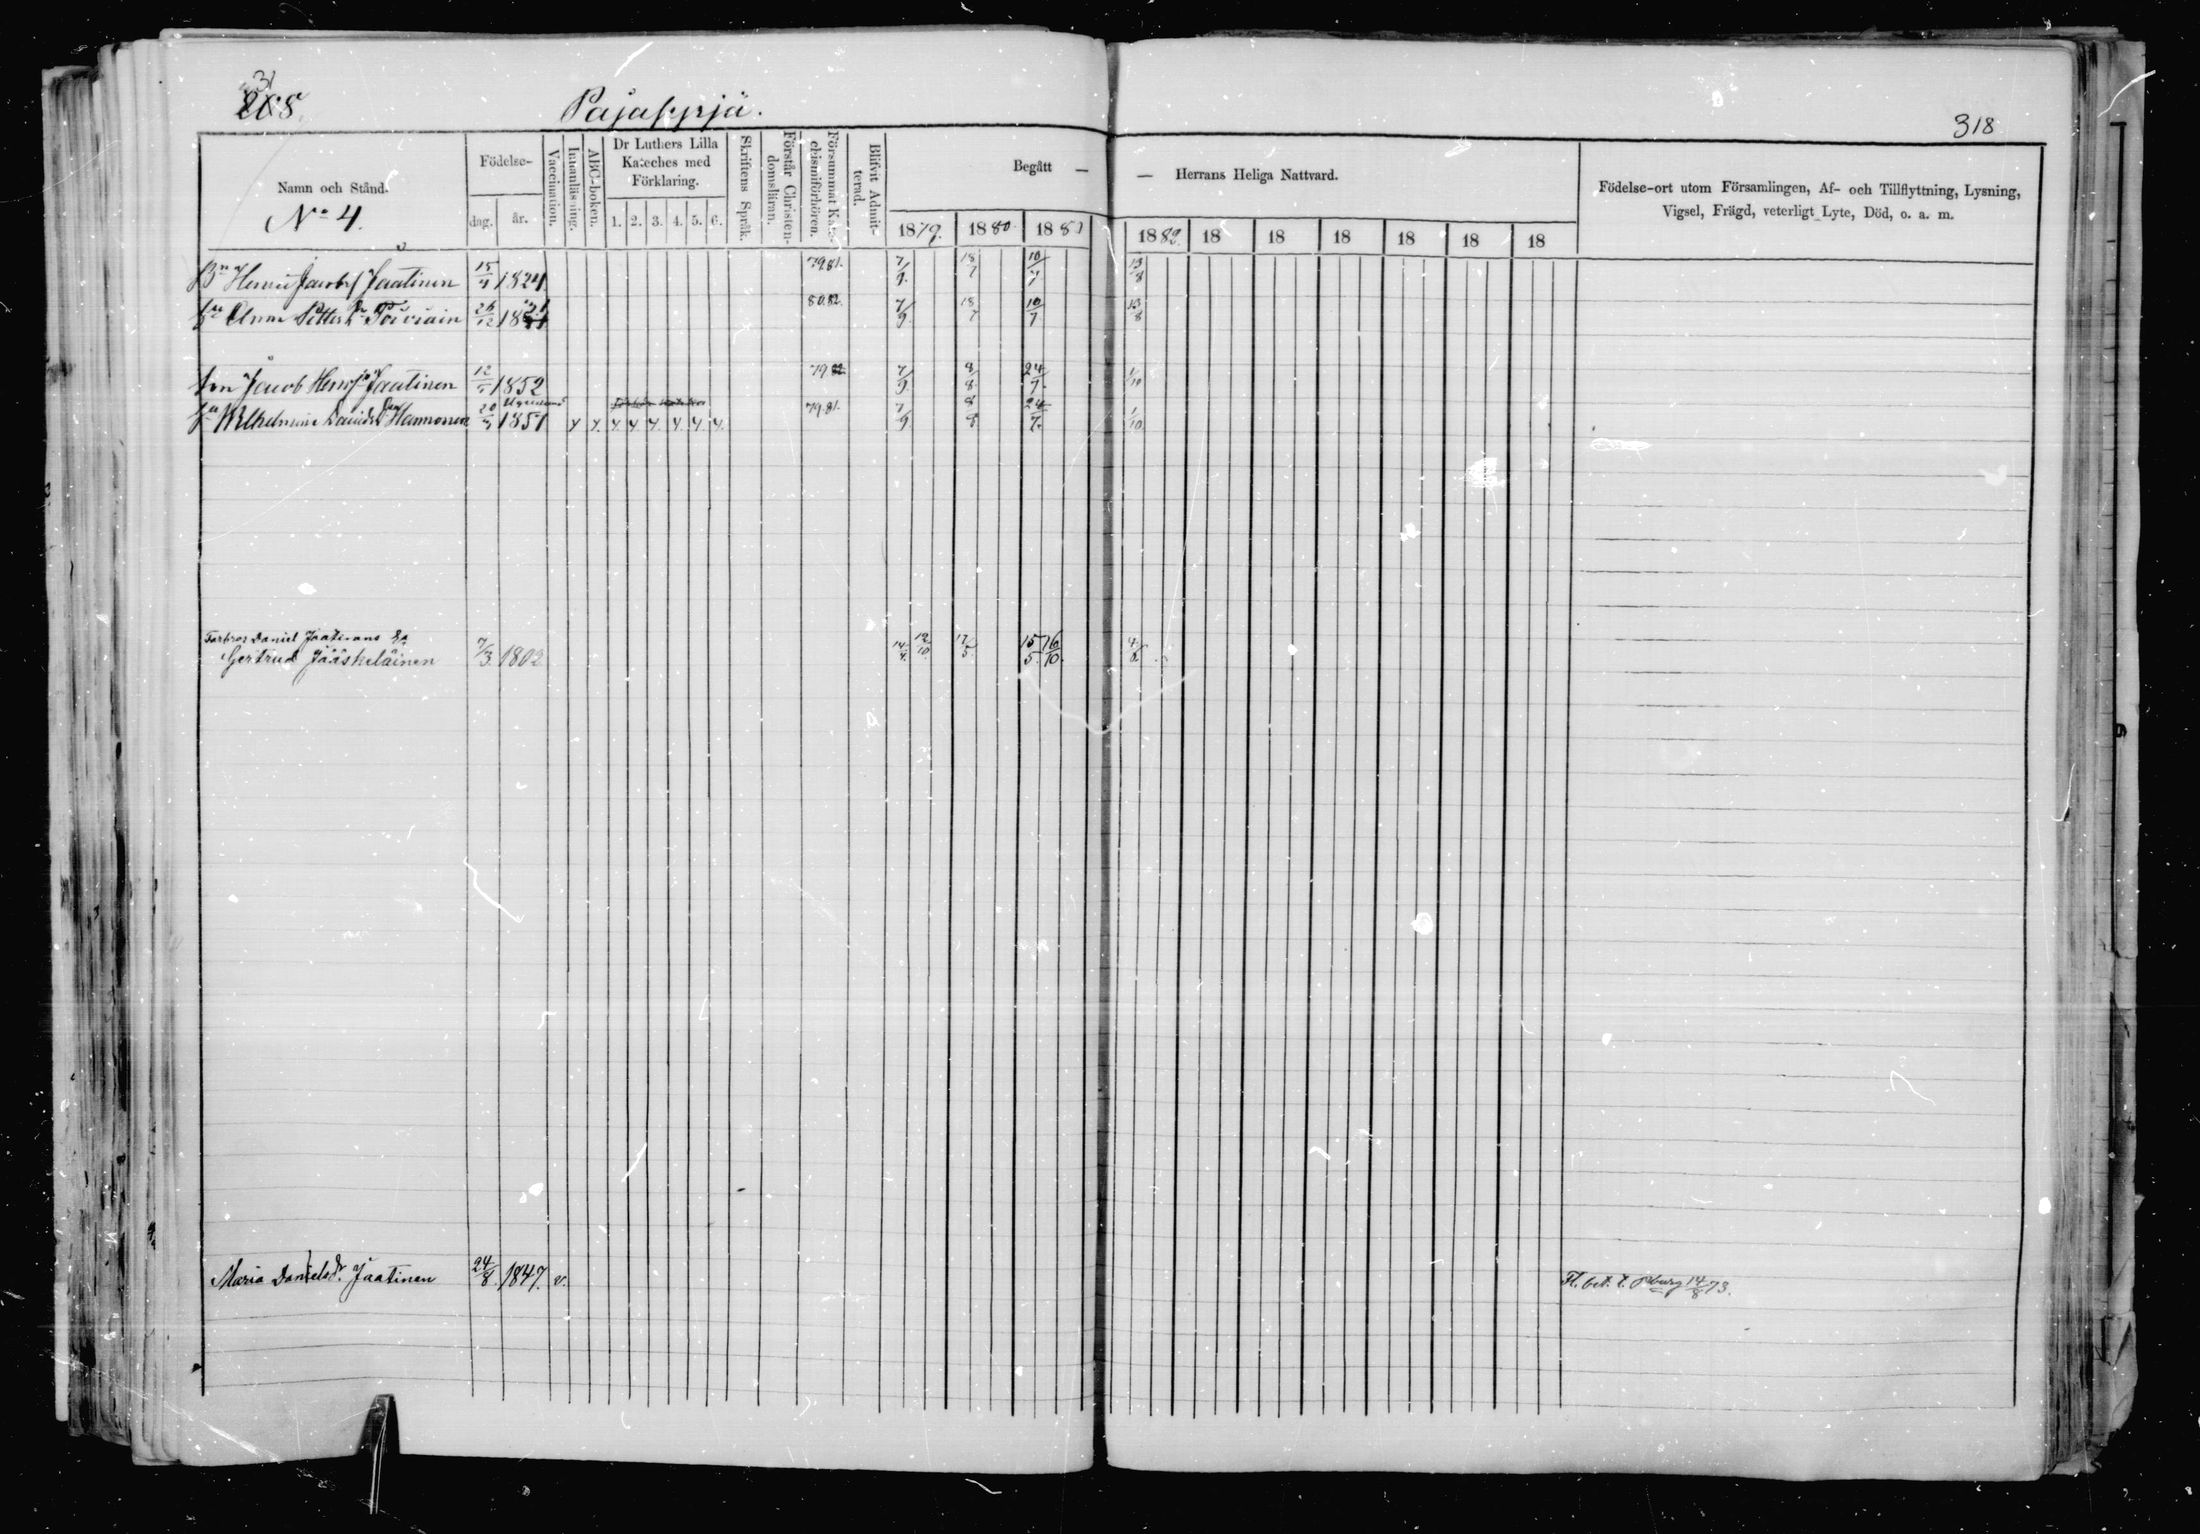 31
208.
318
Namn och Stånd.
No 4.
Födelse-
dag. år.
Vaccination.
Innanläsning.
ABC-boken.
Dr Luthers Lilla
Kateches med
Förklaring.
1. 2. 3. 4. 5. 6.
Skriftens Språk.
Förstår Christen-
domsläran.
Försummat Kate-
chismiförhören.
Blifvit Admit-
terad.
Begått —
— Herrans Heliga Nattvard.
1879. 1880 1881 1882. 18 18 18 18 18 18
Födelse-ort utom Församlingen, Af- och Tillflyttning, Lysning,
Vigsel, Frägd, veterligt Lyte, Död, o. a. m.
Jaatinen 15 1824 79.81. 7/9. 18/7 10/7 13/8
26/12 80.82. 7/9. 18/7 10/7 13/8
Son Jacob Jaatinen 12 1852 79 7/9. 8/8 24/7. 1/10
Hannonen 20 1851 79.81. 7/9. 8/8 24/7. 1/10
Farbror Daniel Jaatinens
Gertrud Jääskeläinen 7/3. 1802 12/10. 17/5. 15/5. 16/10.
Maria Danielsdr. Jaatinen 24/8 1847. v. Fl. bet. t. 14/8 73.